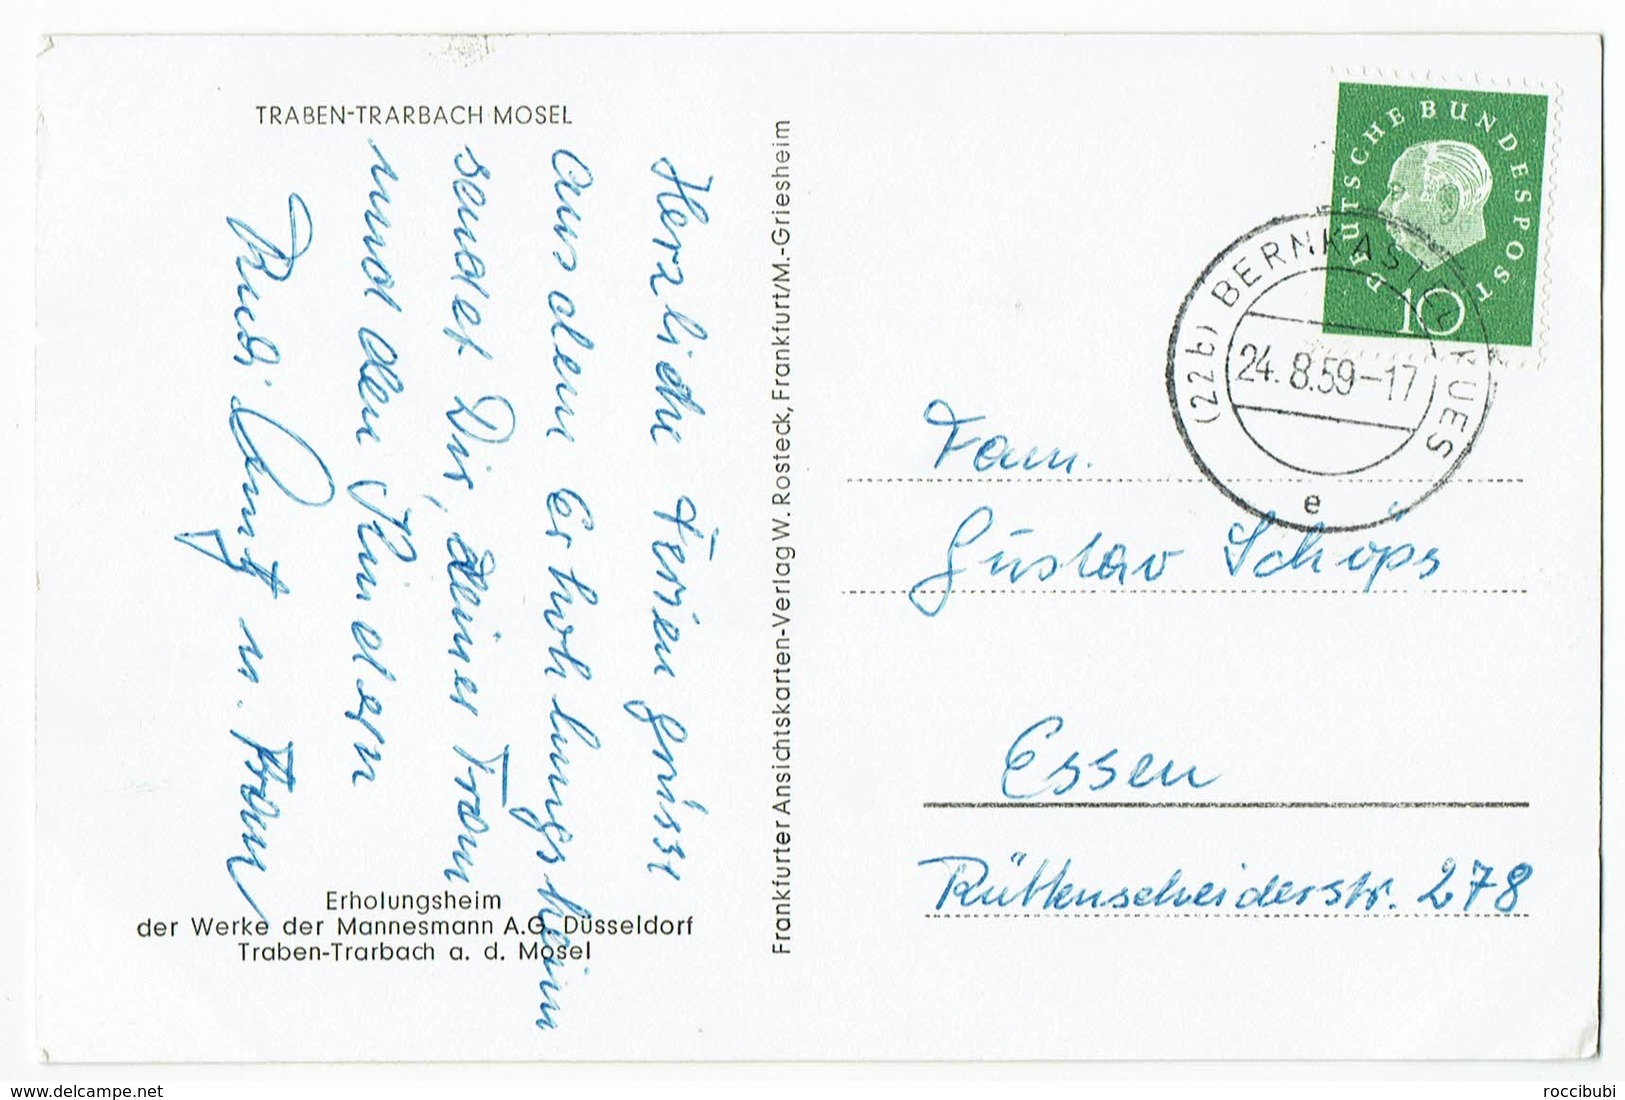 TRABEN-TRARBACH MOSEL
Herzliche Feriengrüsse
aus dem Erhohlungsheim
sendet Dir, deiner Frau
und den Kindern
Rudi u. Frau
Erholungsheim
der Werke der Mannesmann A.G. Düsseldorf
Traben-Trarbach a. d. Mosel
Frankfurter Ansichtskarten-Verlag W. Rosteck, Frankfurt/M.-Griesheim
DEUTSCHE BUNDESPOST
10
(22b) BERNKASTEL-KUES
24.8.59-17
e
Fam.
Gustav Schöps
Essen
Rüttenscheiderstr. 278
delcampe.net
roccibubi